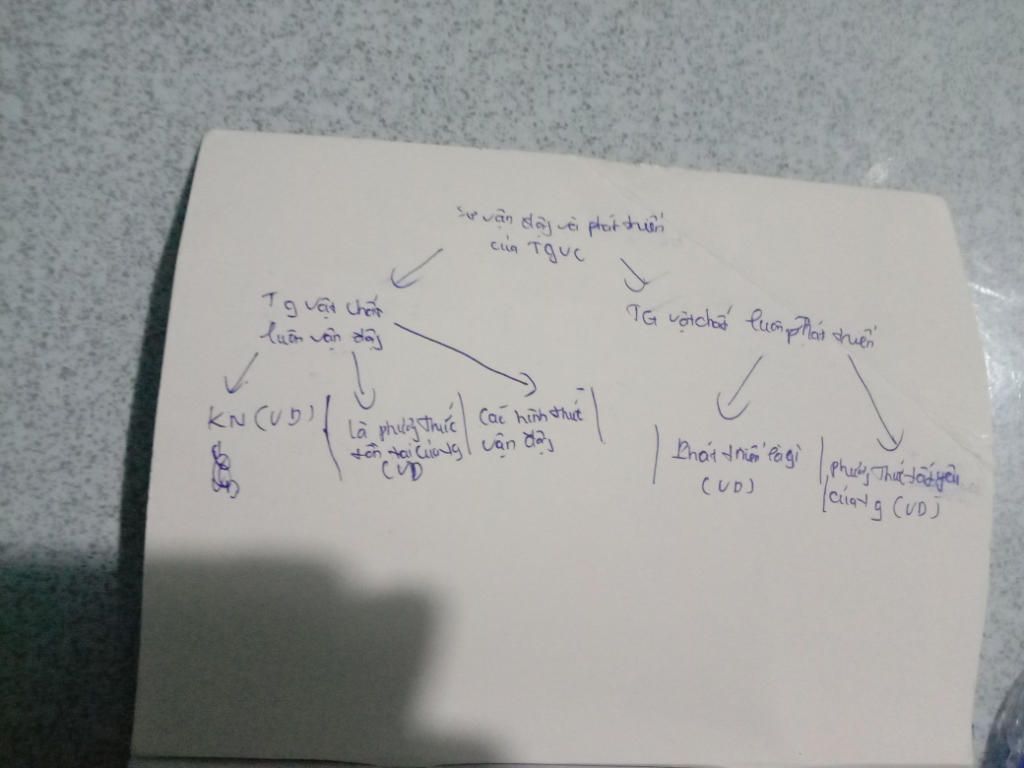 Sự vận độg và phát triển
của TGVC
Tg vật chất
luôn vận độg
TG vật chất luôn phát triển
KN (VD)
Là phươg thức
tồn tại của tg
(VD)
Các hình thức
vận độg
Phát triển là gì
(VD)
phươg thức tất yếu
của tg (VD)